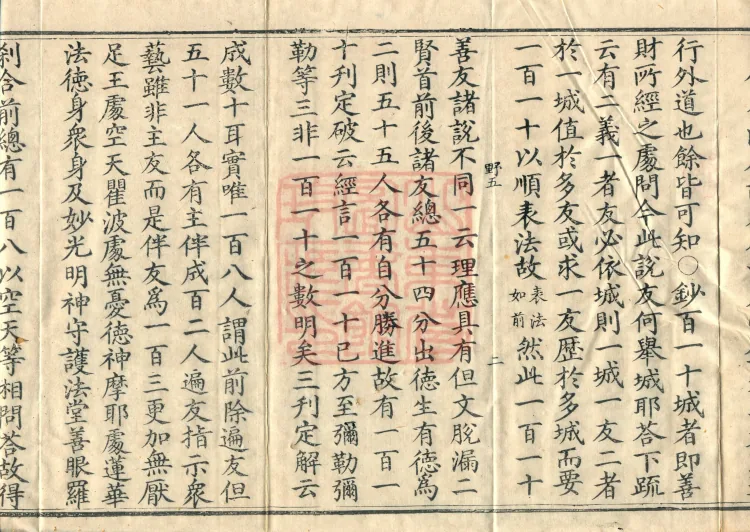 行外道也餘皆可知○鈔百一十城者即善
財所經之處問今此説友何舉城耶荅下䟽
云有二義一者友必依城則一城一友二者
於一城值於多友或求一友歴於多城而要
一百一十以順表法故表法如前然此一百一十
野五
二
善友諸說不同一云理應具有但文脫漏二
賢首前後諸友總五十四分出德生有德爲
二則五十五人各有自分勝進故有一百一
十刋定破云經言一百一十已方至彌勒彌
勒等三非一百一十之數明矣三刋定解云
成數十耳實唯一百八人謂此前除遍友但
五十一人各有主伴成百二人遍友指示衆
藝雖非主友而是伴友爲一百三更加無厭
足王處空天瞿波處無憂德神摩耶處蓮華
法德身衆身及妙光明神守護法堂善眼羅
刹合前總有一百八以空天等相問荅故得